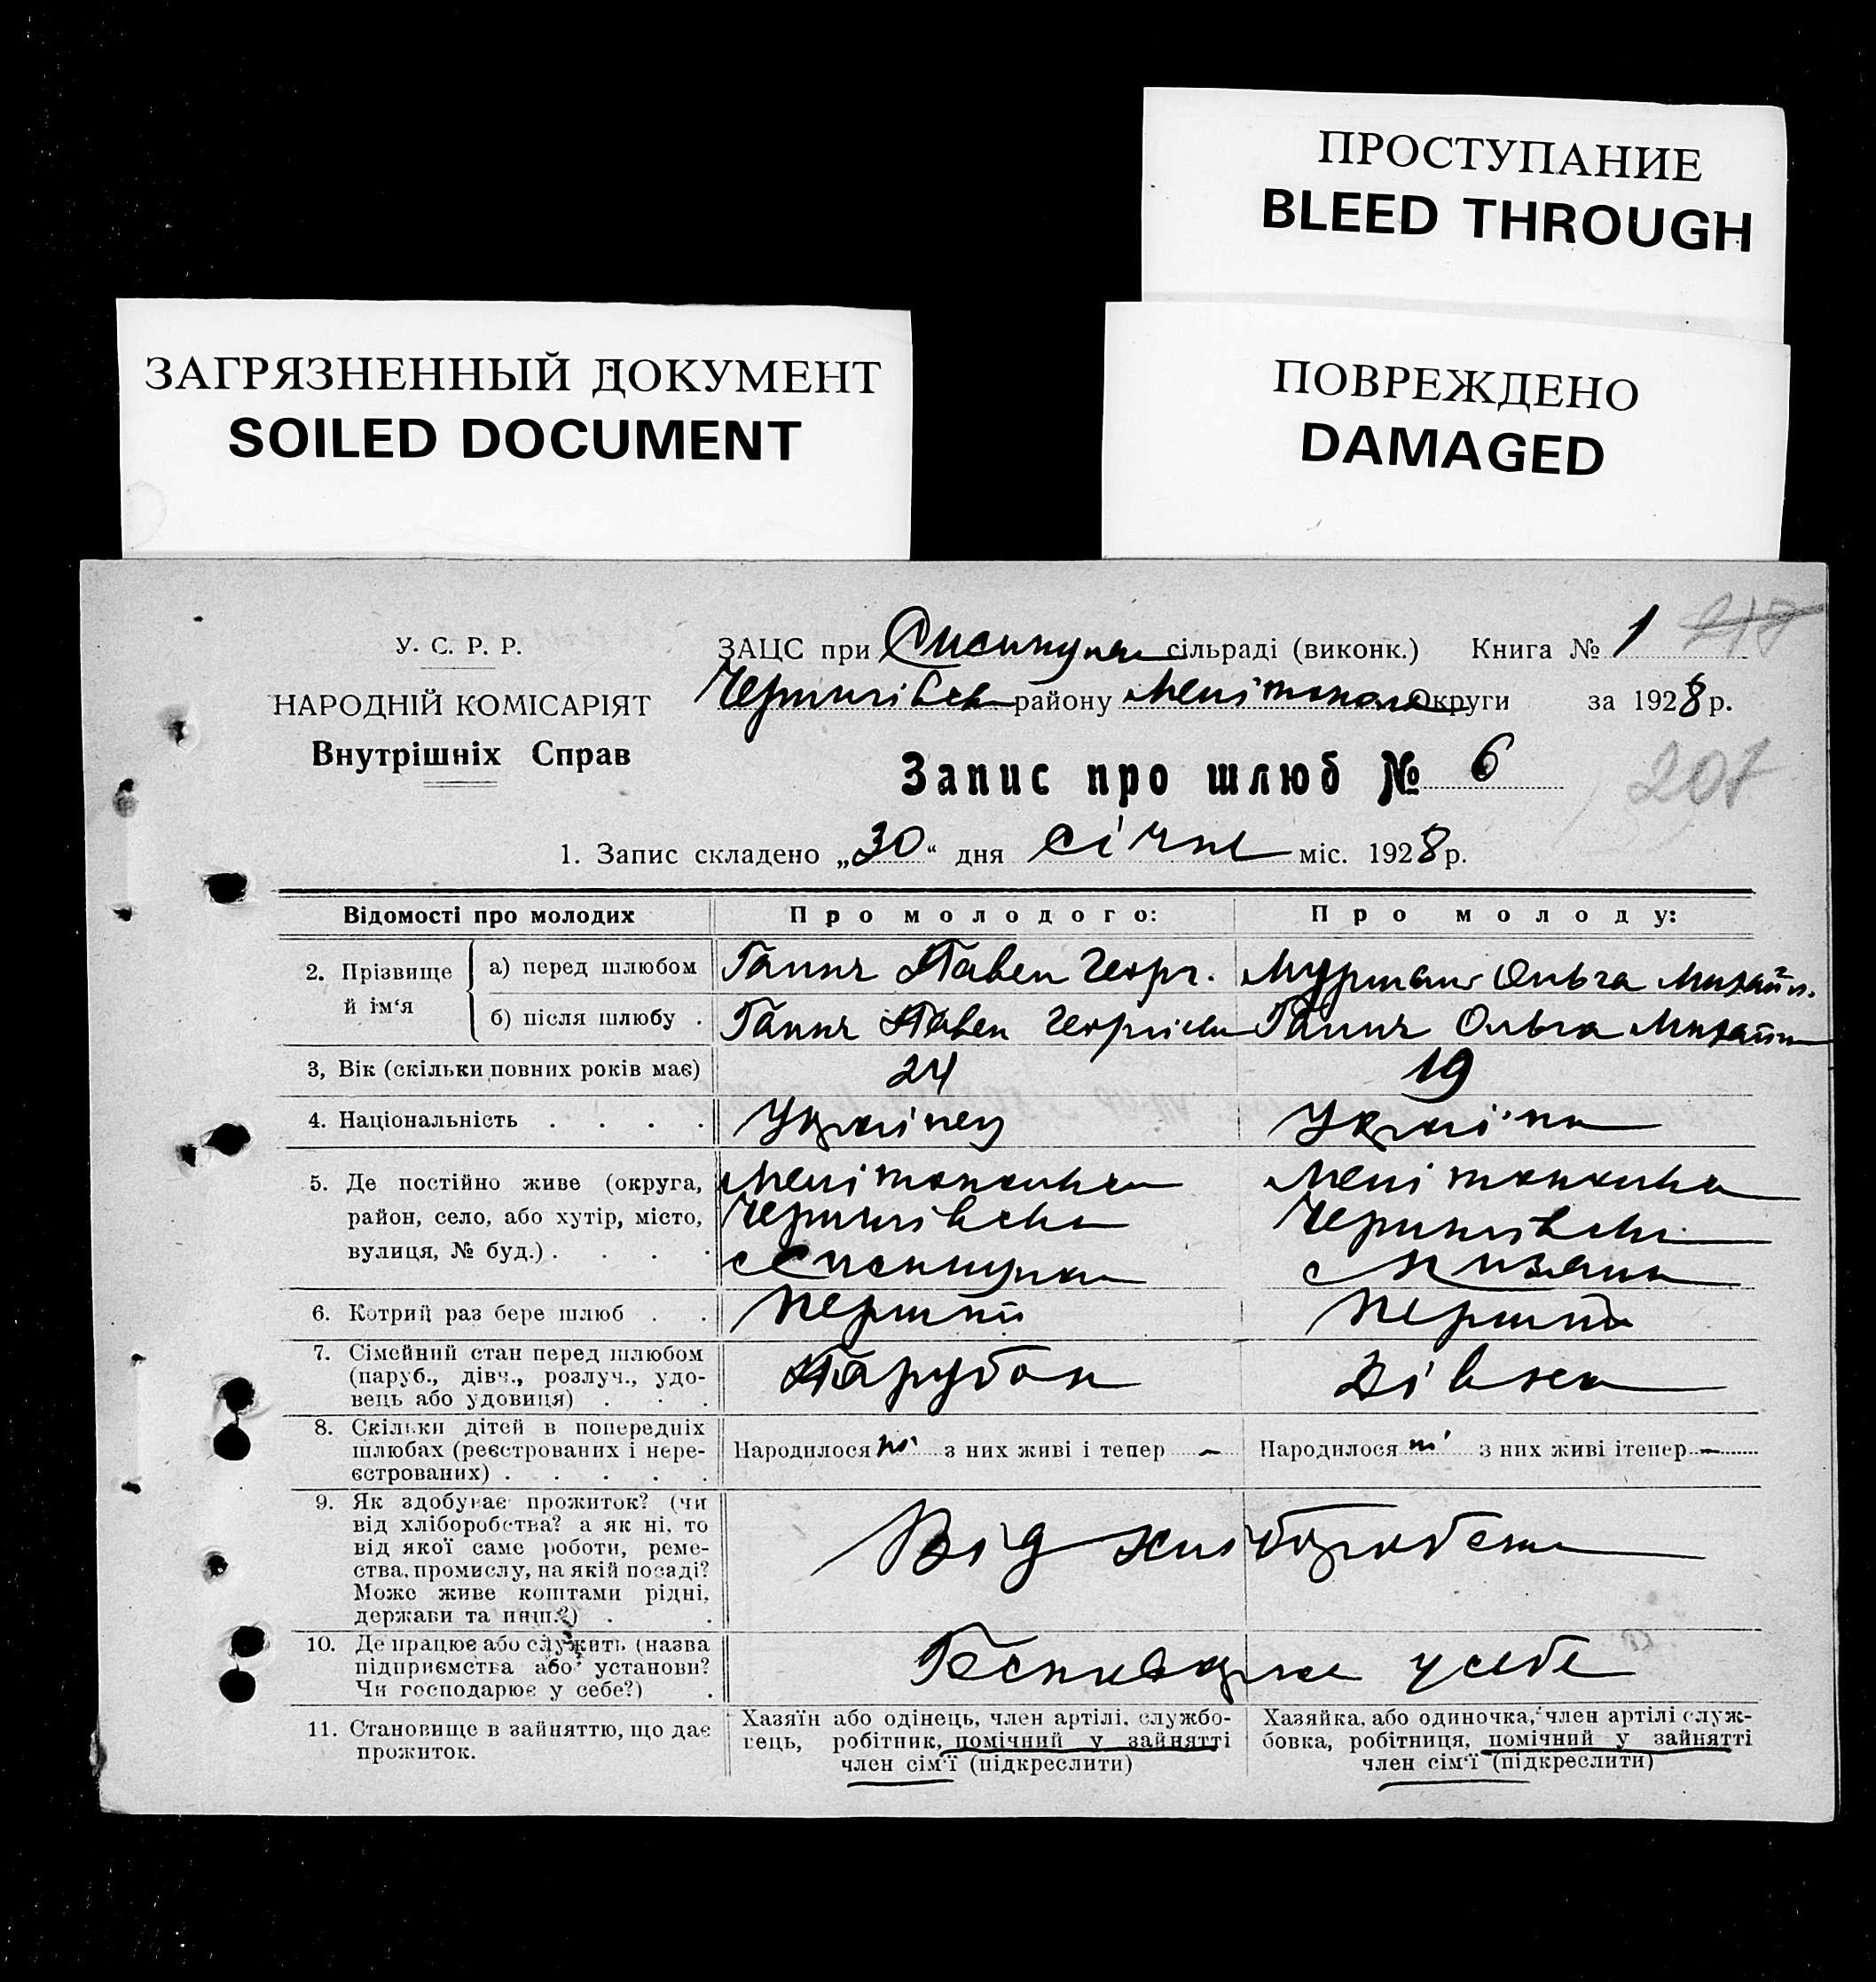 ПРОСТУПАНИЕ
BLEED THROUGH
ЗАГРЯЗНЕННЫЙ ДОКУМЕНТ
SOILED DOCUMENT
ПОВРЕЖДЕНО
DAMAGED
У. С. Р. Р.
НАРОДНІЙ КОМІСАРІЯТ
Внутрішніх Справ
ЗАЦС при сільраді (виконк.) Книга № 1
району округи за 1928 р.
Запис про шлюб № 6
207
1. Запис складено „30“ дня січня міс. 1928 р.
Відомості про молодих
Про молодого:
Про молоду:
2. Прізвище й ім‘я
а) перед шлюбом
Ганич Павел Георг.
Ольга Михайл.
б) після шлюбу
Ганич Павел
Ганич Ольга
3, Вік (скільки повних років має)
24
19
4. Національність
Україне
Україна
5. Де постійно живе (округа,
район, село, або хутір, місто,
вулиця, № буд.)
6. Котрий раз бере шлюб
Перший
Перший
7. Сімейний стан перед шлюбом
(паруб., дівч., розлуч., удо-
вець або удовиця)
Парубок
Дівка
8. Скільки дітей в попередніх
шлюбах (реєстрованих і нере-
єстрованих)
Народилося ні з них живі і тепер –
Народилося ні з них живі ітепер –
9. Як здобуває прожиток? (чи
від хліборобства? а як ні, то
від якої саме роботи, реме-
ства, промислу, на якій посаді?
Може живе коштами рідні,
держави та инш.?)
Від хліборобства
10. Де працює або служить (назва
підприємства або установи?
Чи господарює у себе?)
у себе
11. Становище в зайняттю, що дає
прожиток.
Хазяїн або одінець, член артілі, службо-
вець, робітник, помічний у зайнятті
член сім‘ї (підкреслити)
Хазяйка, або одиночка, член артілі служ-
бовка, робітниця, помічний у зайнятті
член сім‘ї (підкреслити)